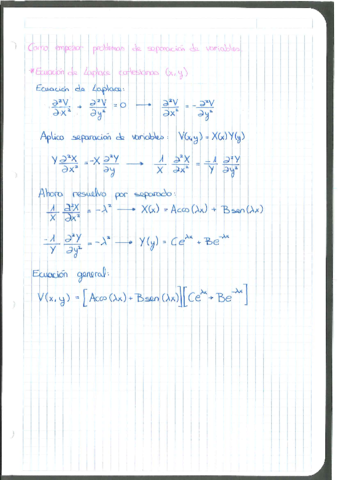 Como empezar problemas de separación de variables
*Ecuación de Laplace cartesianas (x,y)
Ecuación de Laplace:
∂²V/∂x² + ∂²V/∂y² = 0 → ∂²V/∂x² = -∂²V/∂y²
Aplico separación de variables: V(x,y) = X(x)Y(y)
Y ∂²X/∂x² = -X ∂²Y/∂y → 1/X ∂²X/∂x² = -1/Y ∂²Y/∂y²
Ahora resuelvo por separado:
1/X ∂²X/∂x² = -λ² → X(x) = A cos(λx) + B sen(λx)
-1/Y ∂²Y/∂y² = -λ² → Y(y) = Ce^λx + Be^-λx
Ecuación general:
V(x,y) = [A cos(λx) + B sen(λx)][Ce^λx + Be^-λx]